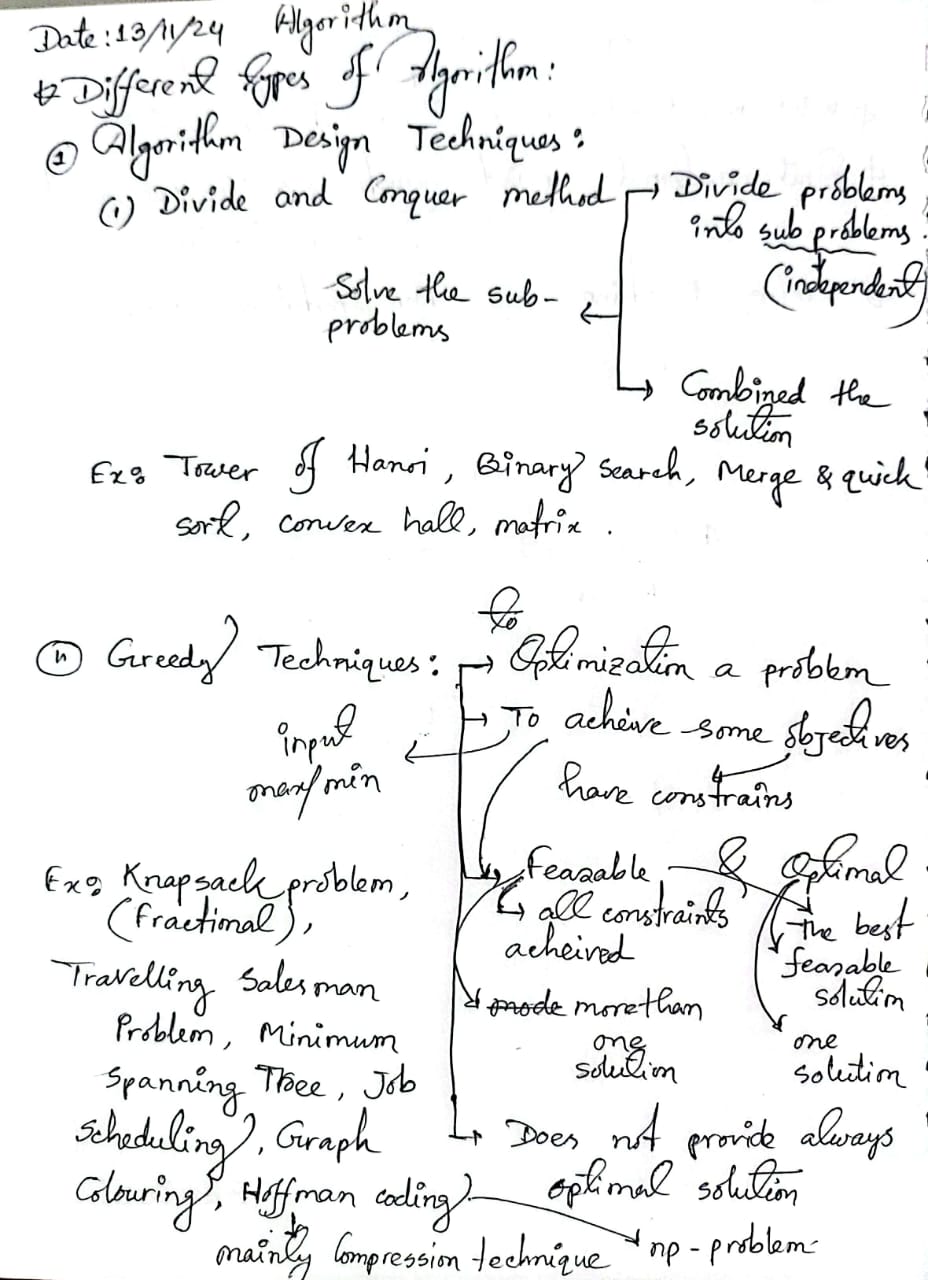 Date:13/11/24 Algorithm
Different types of Algorithm:
① Algorithm Design Techniques:
(i) Divide and Conquer method → Divide problems
into sub problems.
(independent)
Solve the sub-
problems
Combined the
solution
Ex: Tower of Hanoi, Binary Search, Merge & quick
sort, convex hall, matrix.
to
(ii) Greedy Techniques: → Optimization a problem
→ To acheive some objectives
input
max/min
have constrains
Feasable & Optimal
↳ all constraints
acheived
The best
feasable
solution
mode more than
one
solution
one
solution
Ex: Knapsack problem,
(Fractional),
Travelling Salesman
Problem, Minimum
Spanning Tree, Job
Scheduling, Graph
Colouring, Hoffman coding
→ Does not provide always
optimal solution
mainly Compression technique
np-problem